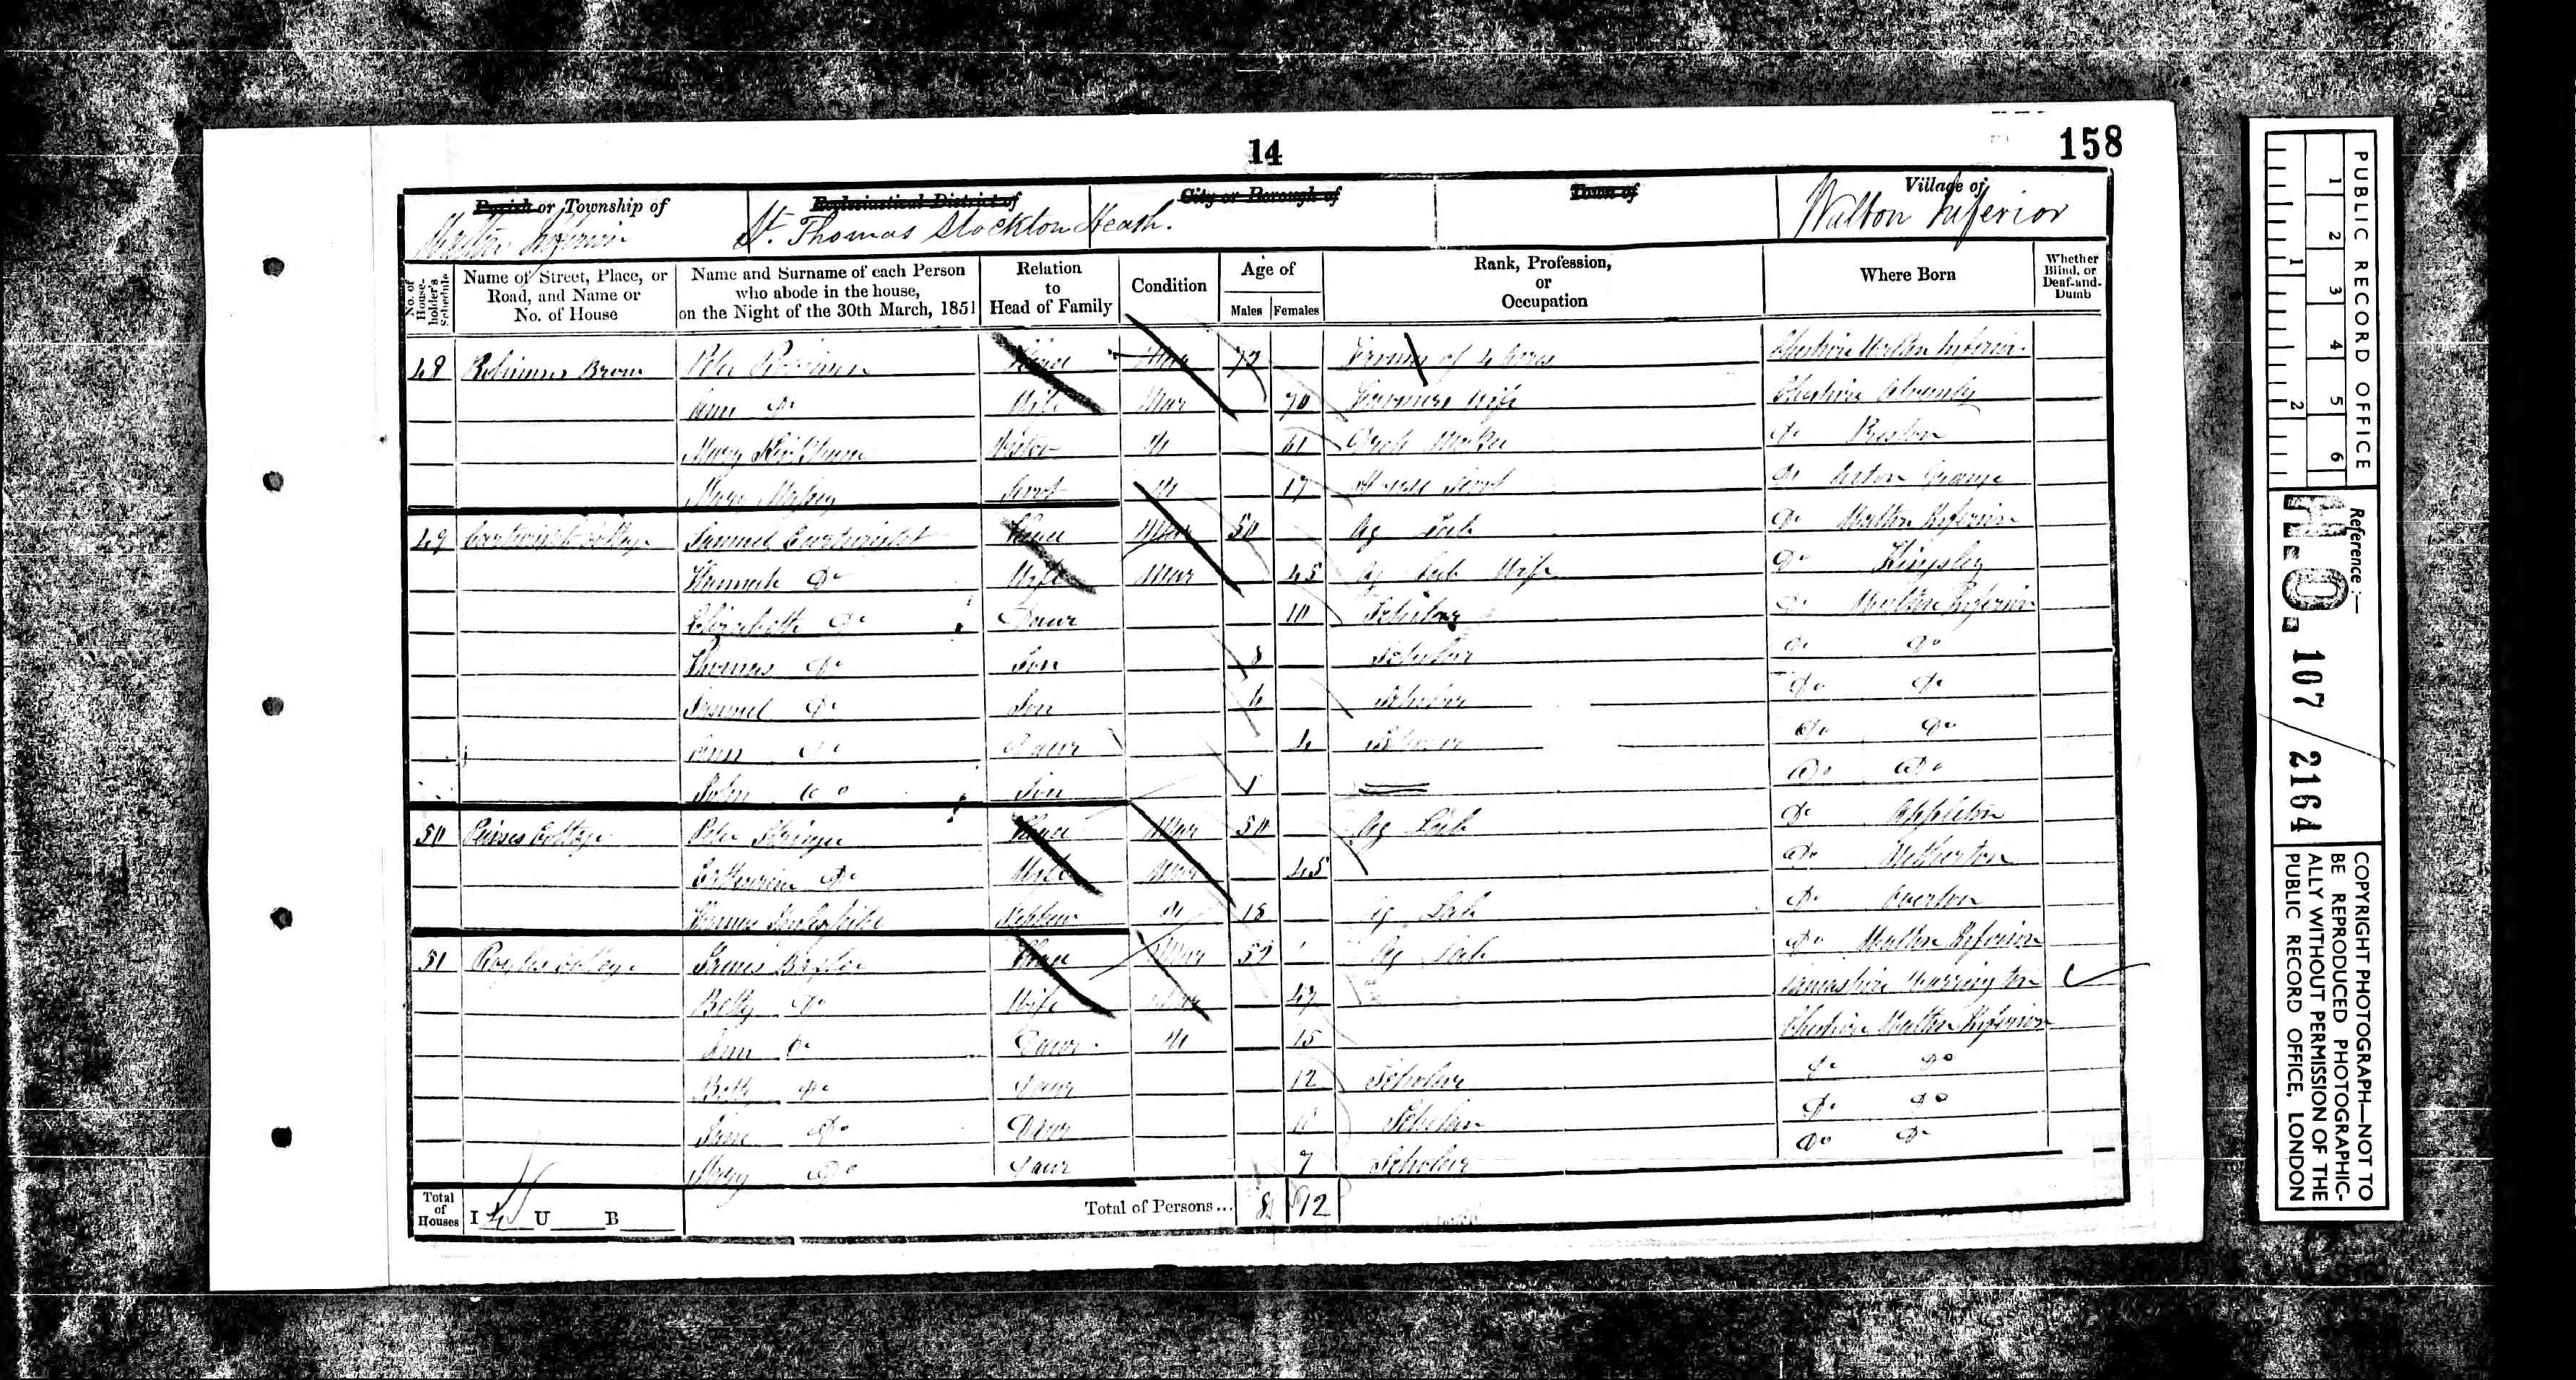 14
158
Parish or Township of
Ecclesiastical District of
City or Borough of
Town of
Village of
Walton Inferior
St. Thomas Stockton Heath.
Walton Inferior
No. of House-holder's Schedule
Name of Street, Place, or Road, and Name or No. of House
Name and Surname of each Person who abode in the house, on the Night of the 30th March, 1851
Relation to Head of Family
Condition
Age of
Males
Females
Rank, Profession, or Occupation
Where Born
Whether Blind, or Deaf-and-Dumb
48 Peter Head Mar 72 Farmer of 4 Acres Cheshire Walton Inferior
Ann Do Wife Mar 70 Farmers Wife Cheshire
Mary Visitor U 61 Do Preston
Mary Servt U 17 House Servt Do Acton Grange
49 Cartwrights Cottage Samuel Cartwright Head Mar 50 Ag Lab Do Walton Inferior
Hannah Do Wife Mar 45 Ag Lab Wife Do Kingsley
Elizabeth Do Daur 10 Scholar Do Walton Inferior
Thomas Do Son 8 Scholar Do Do
Samuel Do Son 6 Scholar Do Do
Ann Do Daur 4 Scholar Do Do
John Do Son 1 Do Do
50 Cottage Peter Stringer Head Mar 50 Ag Lab Do Appleton
Catherine Do Wife Mar 45 Do
Nephew U 18 Ag Lab Do Overton
51 Cottage James Head Mar 52 Ag Lab Do Walton Inferior
Betty Do Wife Mar 47 Lancashire Warrington
Ann Do Daur U 15 Cheshire Walton Inferior
Betty Do Daur 12 Scholar Do Do
Jane Do Daur Scholar Do Do
Mary Do Daur 7 Scholar Do Do
Total of Houses I 4 U B
Total of Persons... 8 12
PUBLIC RECORD OFFICE
1 2 3 4 5 6
1 2
Reference :—
H.O. 107 / 2164
COPYRIGHT PHOTOGRAPH—NOT TO
BE REPRODUCED PHOTOGRAPHIC-
ALLY WITHOUT PERMISSION OF THE
PUBLIC RECORD OFFICE, LONDON